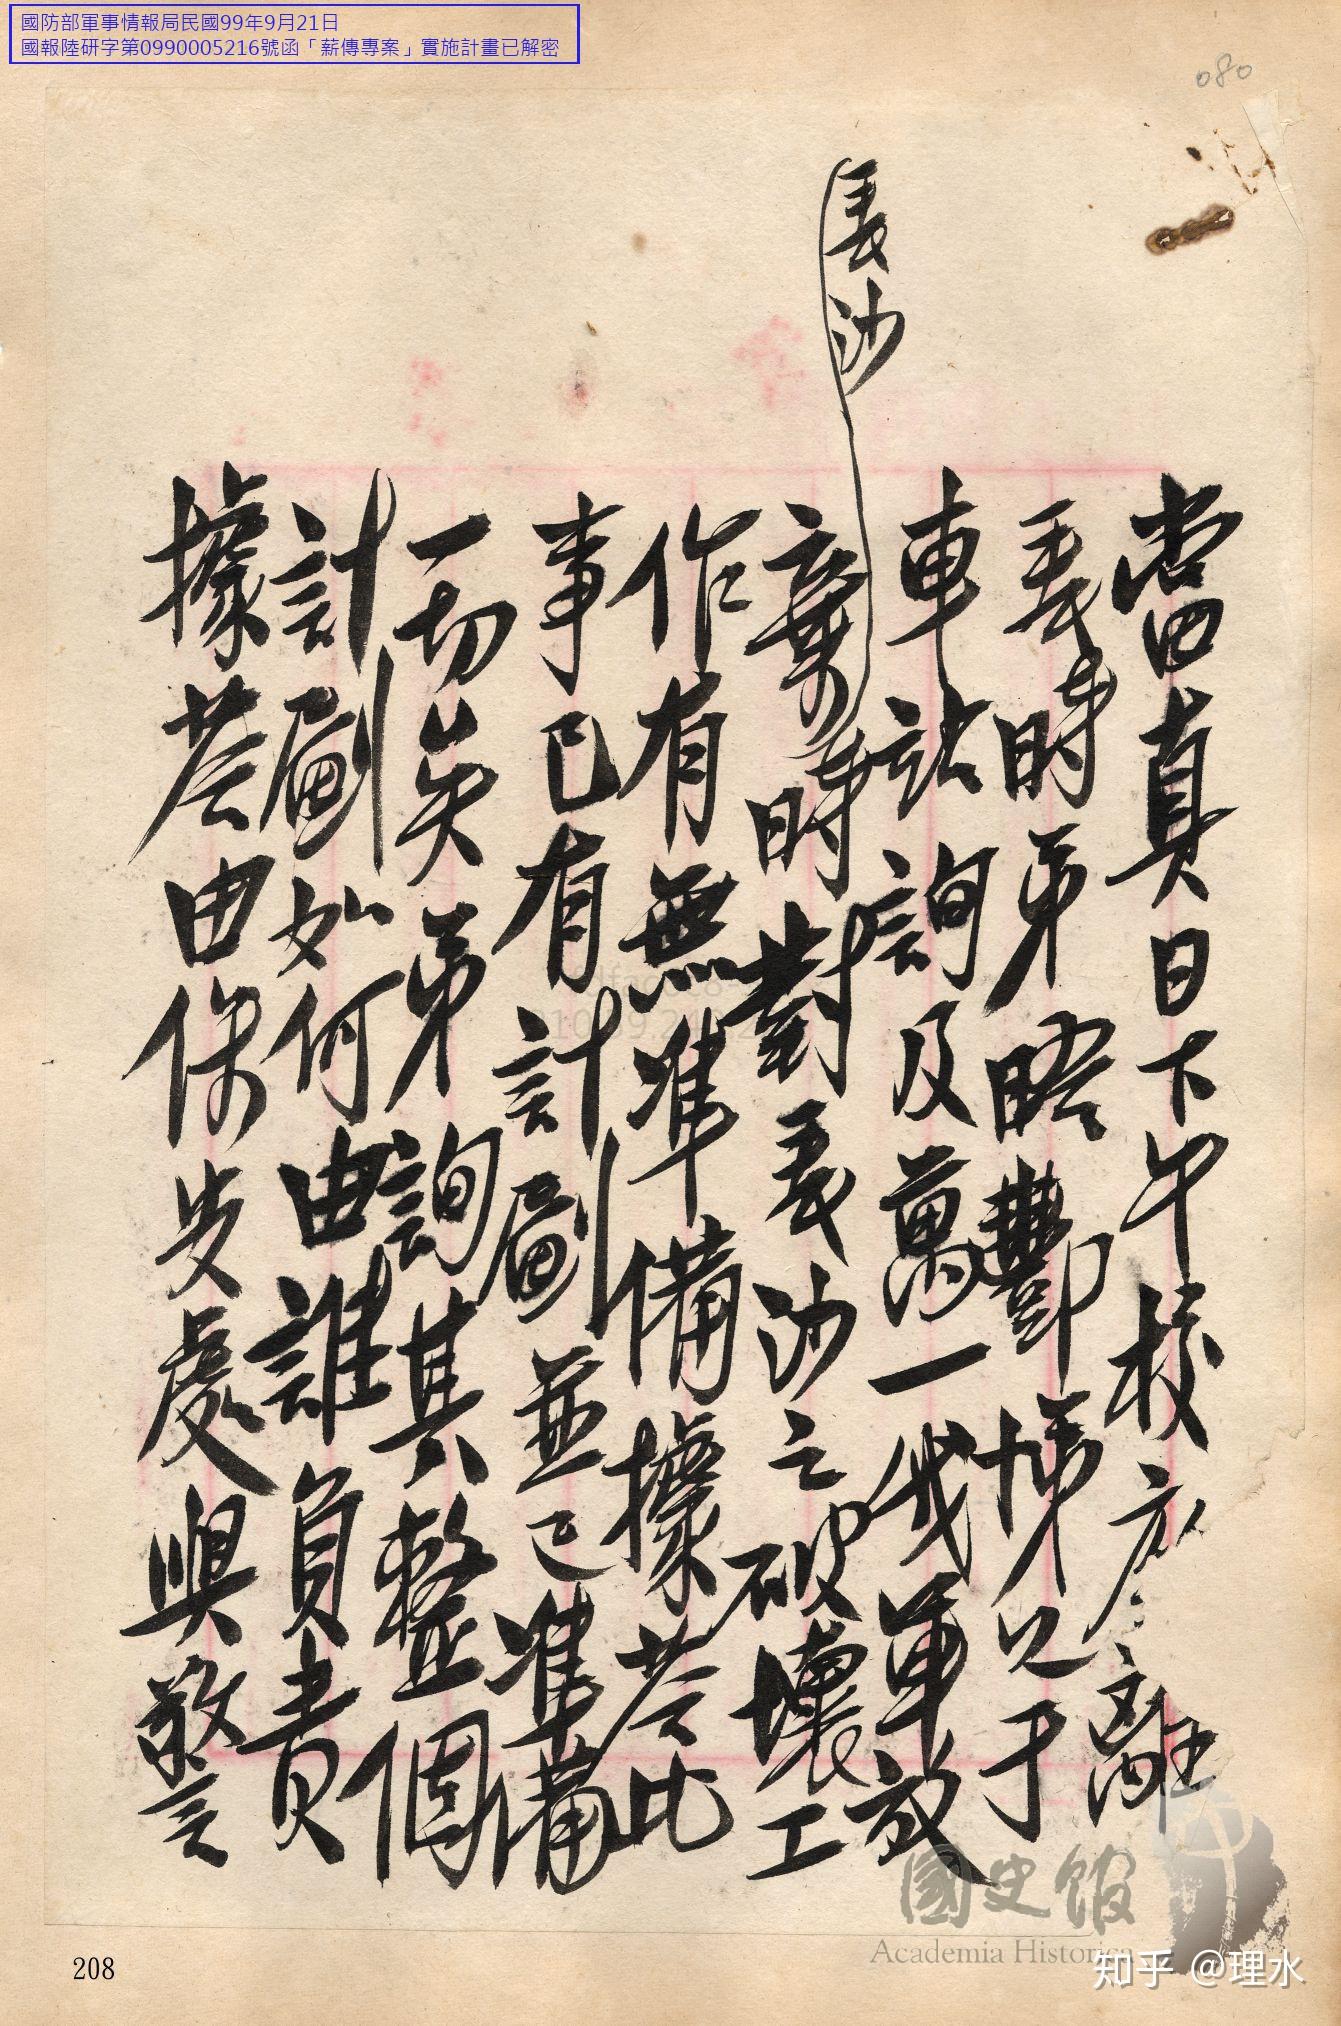 國防部軍事情報局民國99年9月21日
國報陸研字第0990005216號函「薪傳專案」實施計畫已解密
080
當真日下午校座離
長時弟晤酆悌兄于
車站詢及萬一我軍放
棄長沙時對長沙之破壞工
作有無準備據答此
事已有計劃並已準備
一切矣弟詢其整個
計劃如何由誰負責
據答由保安處與警
208
國史館
Academia Historica
知乎 @理水